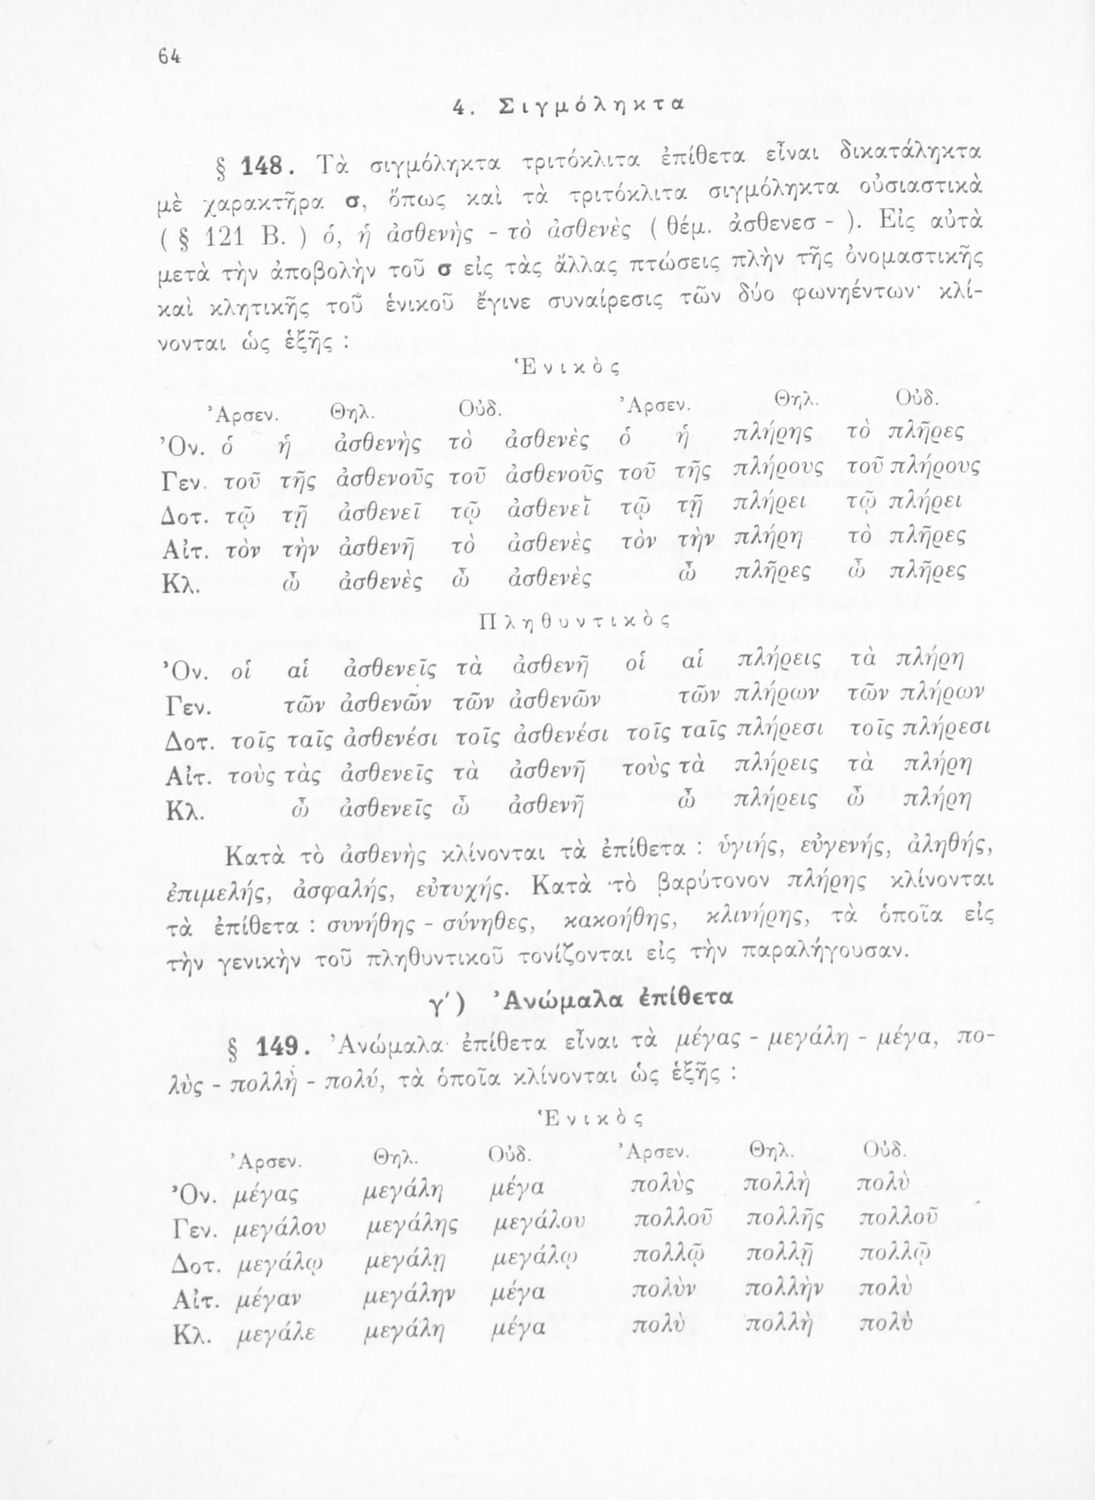 64
4. Σιγμόληκτα
§ 148. Τὰ σιγμόληκτα τριτόκλιτα ἐπίθετα εἶναι δικατάληκτα
μὲ χαρακτῆρα σ, ὅπως καὶ τὰ τριτόκλιτα σιγμόληκτα οὐσιαστικὰ
( § 121 Β. ) ὁ, ἡ ἀσθενὴς - τὸ ἀσθενὲς ( θέμ. ἀσθενεσ - ). Εἰς αὐτὰ
μετὰ τὴν ἀποβολὴν τοῦ σ εἰς τὰς ἄλλας πτώσεις πλὴν τῆς ὀνομαστικῆς
καὶ κλητικῆς τοῦ ἑνικοῦ ἔγινε συναίρεσις τῶν δύο φωνηέντων· κλί-
νονται ὡς ἑξῆς :
Ἑνικὸς
Ἀρσεν. Θηλ. Οὐδ. Ἀρσεν. Θηλ. Οὐδ.
Ὀν. ὁ ἡ ἀσθενὴς τὸ ἀσθενὲς ὁ ἡ πλήρης τὸ πλῆρες
Γεν. τοῦ τῆς ἀσθενοῦς τοῦ ἀσθενοῦς τοῦ τῆς πλήρους τοῦ πλήρους
Δοτ. τῷ τῇ ἀσθενεῖ τῷ ἀσθενεῖ τῷ τῇ πλήρει τῷ πλήρει
Αἰτ. τὸν τὴν ἀσθενῆ τὸ ἀσθενὲς τὸν τὴν πλήρη τὸ πλῆρες
Κλ. ὦ ἀσθενὲς ὦ ἀσθενὲς ὦ πλῆρες ὦ πλῆρες
Πληθυντικὸς
Ὀν. οἱ αἱ ἀσθενεῖς τὰ ἀσθενῆ οἱ αἱ πλήρεις τὰ πλήρη
Γεν. τῶν ἀσθενῶν τῶν ἀσθενῶν τῶν πλήρων τῶν πλήρων
Δοτ. τοῖς ταῖς ἀσθενέσι τοῖς ἀσθενέσι τοῖς ταῖς πλήρεσι τοῖς πλήρεσι
Αἰτ. τοὺς τὰς ἀσθενεῖς τὰ ἀσθενῆ τοὺς τὰ πλήρεις τὰ πλήρη
Κλ. ὦ ἀσθενεῖς ὦ ἀσθενῆ ὦ πλήρεις ὦ πλήρη
Κατὰ τὸ ἀσθενὴς κλίνονται τὰ ἐπίθετα : ὑγιής, εὐγενής, ἀληθής,
ἐπιμελής, ἀσφαλής, εὐτυχής. Κατὰ τὸ βαρύτονον πλήρης κλίνονται
τὰ ἐπίθετα : συνήθης - σύνηθες, κακοήθης, κλινήρης, τὰ ὁποῖα εἰς
τὴν γενικὴν τοῦ πληθυντικοῦ τονίζονται εἰς τὴν παραλήγουσαν.
γ΄) Ἀνώμαλα ἐπίθετα
§ 149. Ἀνώμαλα ἐπίθετα εἶναι τὰ μέγας - μεγάλη - μέγα, πο-
λὺς - πολλὴ - πολύ, τὰ ὁποῖα κλίνονται ὡς ἑξῆς :
Ἑνικὸς
Ἀρσεν. Θηλ. Οὐδ. Ἀρσεν. Θηλ. Οὐδ.
Ὀν. μέγας μεγάλη μέγα πολὺς πολλὴ πολὺ
Γεν. μεγάλου μεγάλης μεγάλου πολλοῦ πολλῆς πολλοῦ
Δοτ. μεγάλῳ μεγάλῃ μεγάλῳ πολλῷ πολλῇ πολλῷ
Αἰτ. μέγαν μεγάλην μέγα πολὺν πολλὴν πολὺ
Κλ. μεγάλε μεγάλη μέγα πολὺ πολλὴ πολὺ